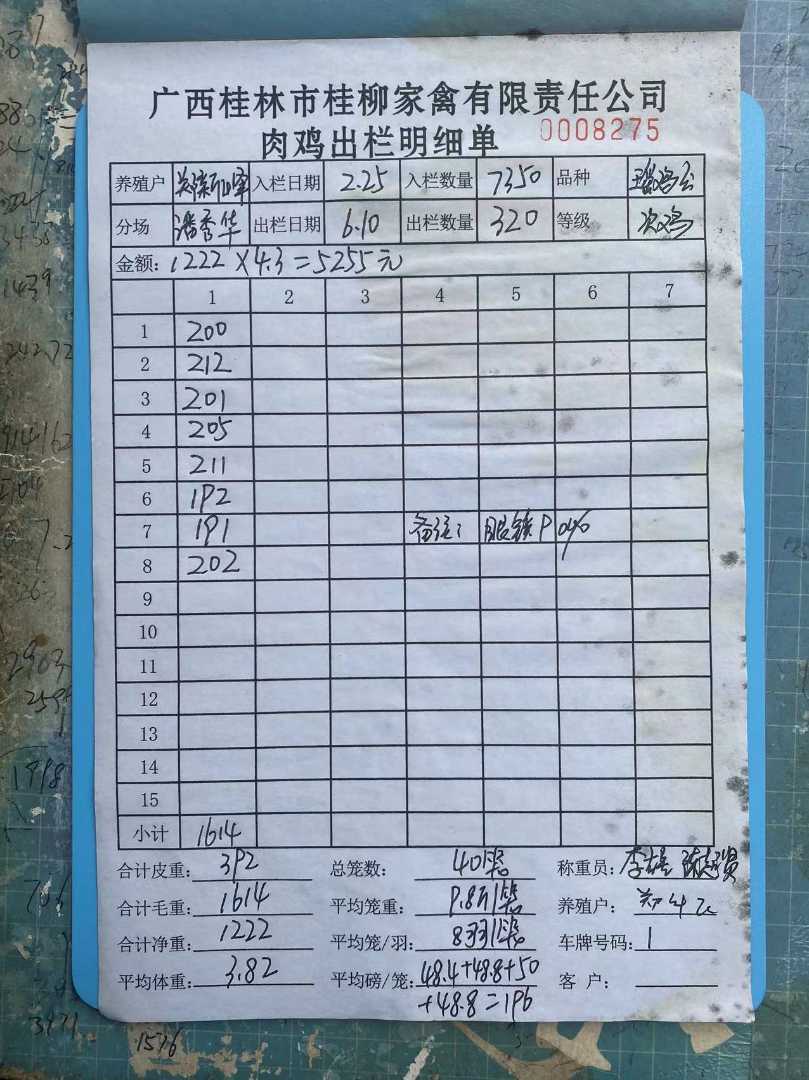 广西桂林市桂柳家禽有限责任公司
肉鸡出栏明细单 0008275
养殖户 入栏日期 2.25 入栏数量 7350 品种
分场 潘秀华 出栏日期 6.10 出栏数量 320 等级 次鸡
金额: 1222×4.3=5255元
1 2 3 4 5 6 7
1 200
2 212
3 201
4 205
5 211
6 192
7 191 备注:
8 202
9
10
11
12
13
14
15
小计 1614
合计皮重: 392 总笼数: 40 称重员: 李
合计毛重: 1614 平均笼重: 9.8 养殖户: 郑
合计净重: 1222 平均笼/羽: 8羽 车牌号码: 1
平均体重: 3.82 平均磅/笼: 48.4+48.8+50 客户:
+48.8=196